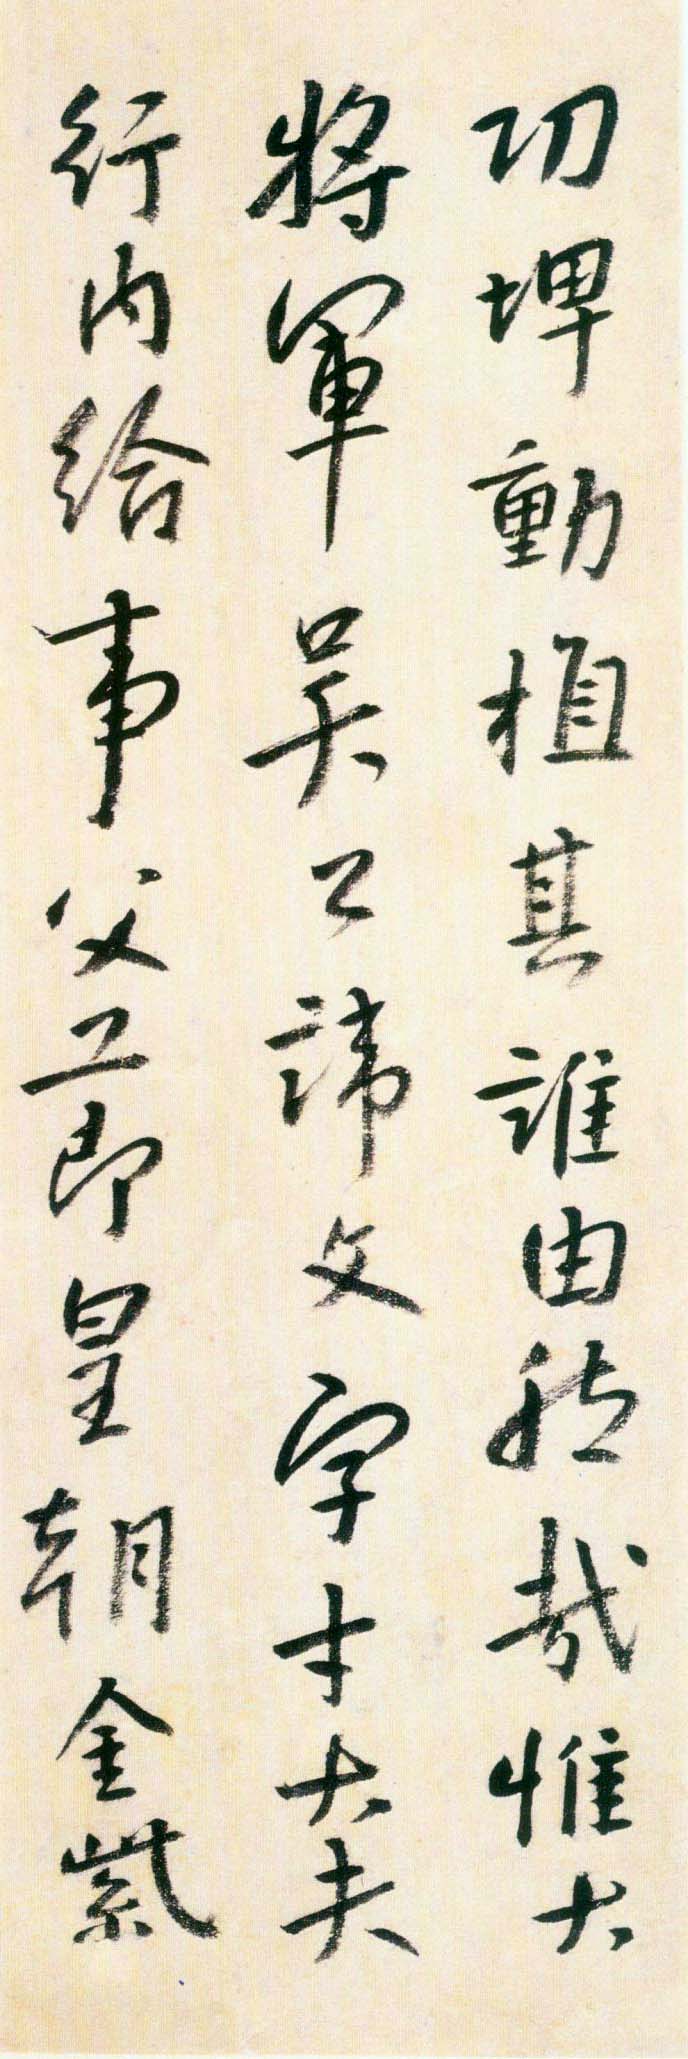 功埤動植其誰由然哉惟大
將軍吳公諱文字才大夫
行内給事父工即皇朝金紫